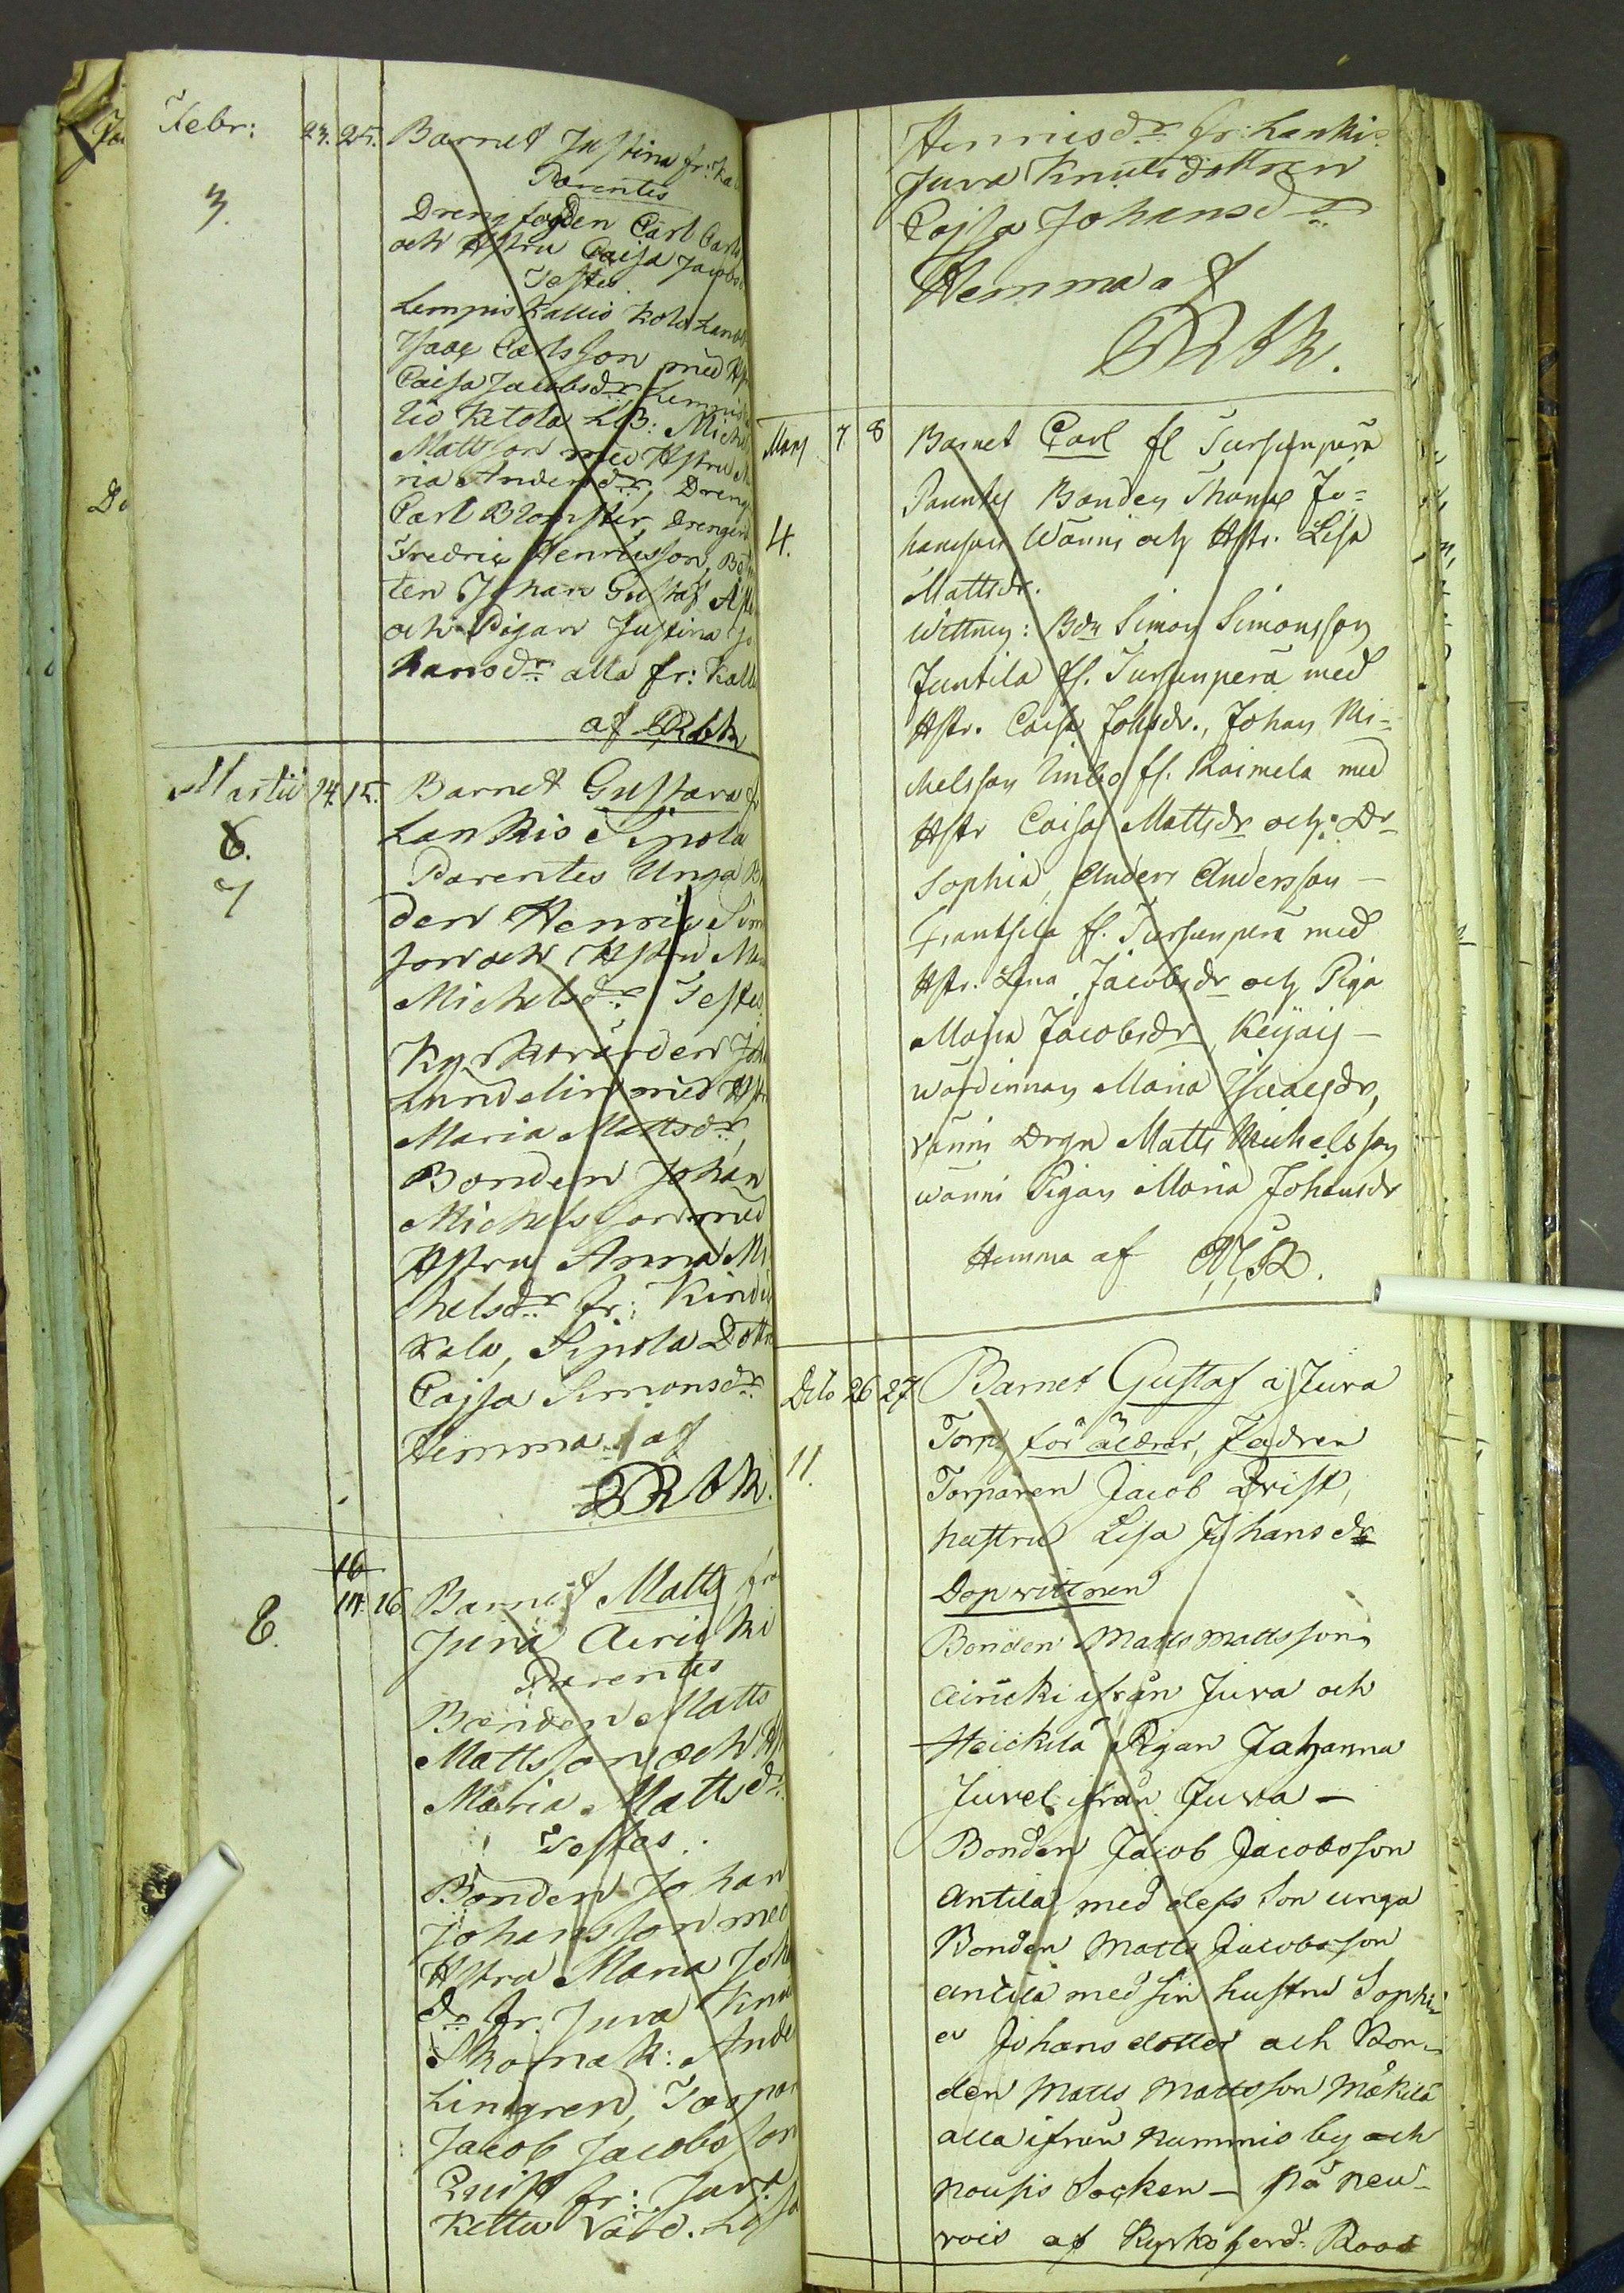 Febr: 23. 25. Barnet Justina fr:
3.
Parentes
Drengfogden Carl
och Hstru Caisa Jacobs
Testes
Lempis Kallio
Isaac Carlsson med
Caisa Jacobsdr
Ketola Michel
Mattsson med Hstru
ria Andersdr, Dreng
Carl Blomster, Drengen
Fredric Henricsson,
ten Johan Gustaf
och Pigan Justina Jo
hansdr alla fr: Kall
af
Martii 14. 15. Barnet Gustava
6. Lankkio Sipola
7 Parentes Unga
den Henric Sim
son och Hstru
Michelsdr Testes
Kyrkovärden Joh
Lundelin med
Maria Mattsdr,
Bonden Johan
Michelsson med
Hstru Anna Mi
chelsdr fr: Kindi
kala, Sipola Dottr
Cajsa Simonsdr
Hemma af
16
14. 16 Barnet Matts frå
8. Juva Airikki
Parentes
Bonden Matts
Mattsson och
Maria Mattsdr.
Testes.
Bonden Johan
Johansson med
Hstru Maria Joh
dr fr. Juva Knu
Skomak: Ande
Lindgren, Torpar
Jacob Jacobsson
Qvist fr: Juva
Kettu
Henricsdr fr: Lankki
Juva Knuti dottren
Cajsa Johansdr
Hemma af
Marj 7 8 Barnet Carl fl Tursunperä
Parentes Bonden Thomas Jo=
4. hansson Wänni och Hstr. Lisa
Mattsdr.
Wittnen: Bdn Simon Simonsson
Juntila fl. Tursunperä med
Hstr. Caisa Johsdr., Johan Mi=
chelsson fl. Raimela med
Hstr Caisa Mattsdr och Dr
Sophia, Anders Andersson
Frantsila fl. Tursunperä med
Hstr. Lena Jacobsdr och Piga
Maria Jacobsdr
wärdinnan Maria Isaacsdr,
Vänni Drgn Matts Michelsson
Wänni Pigan Maria Johansdr
Hemma af
Dito 26 27 Barnet Gustaf a Juva
Torp, för äldrar, Fadren
11. Torparen Jacob Qvist,
hustru Lisa Johansdr
Dopvittnen
Bonden Matts Mattsson
Airicki ifrån Juva och
Heickilä Pigan Johanna
Juvel ifrån Juva —
Bonden Jacob Jacobsson
Antila med dess Son unga
Bonden Matts Jacobsson
Antila med sin hustru Sophi
a Johansdotter och Bon-
den Matts Mattsson Mäkilä
alla ifrån Nummis by och
Nousis Socken — på
af Kyrkoherd. Roos